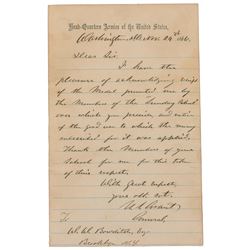 Head-Quarters Armies of the United States,
Washington, D.C. Nov. 24th 186
Dear Sir
I have the
pleasure of acknowledging receipt
of the Medal presented me by
the Members of the Sunday School
over which you preside, and
of the good use to which the money
for it was applied.
Thank the Members of your
School for me for this token
of their respect.
With great respect
your obt. svt.
U.S. Grant
General,
To
Esq.
Brooklyn N.Y.